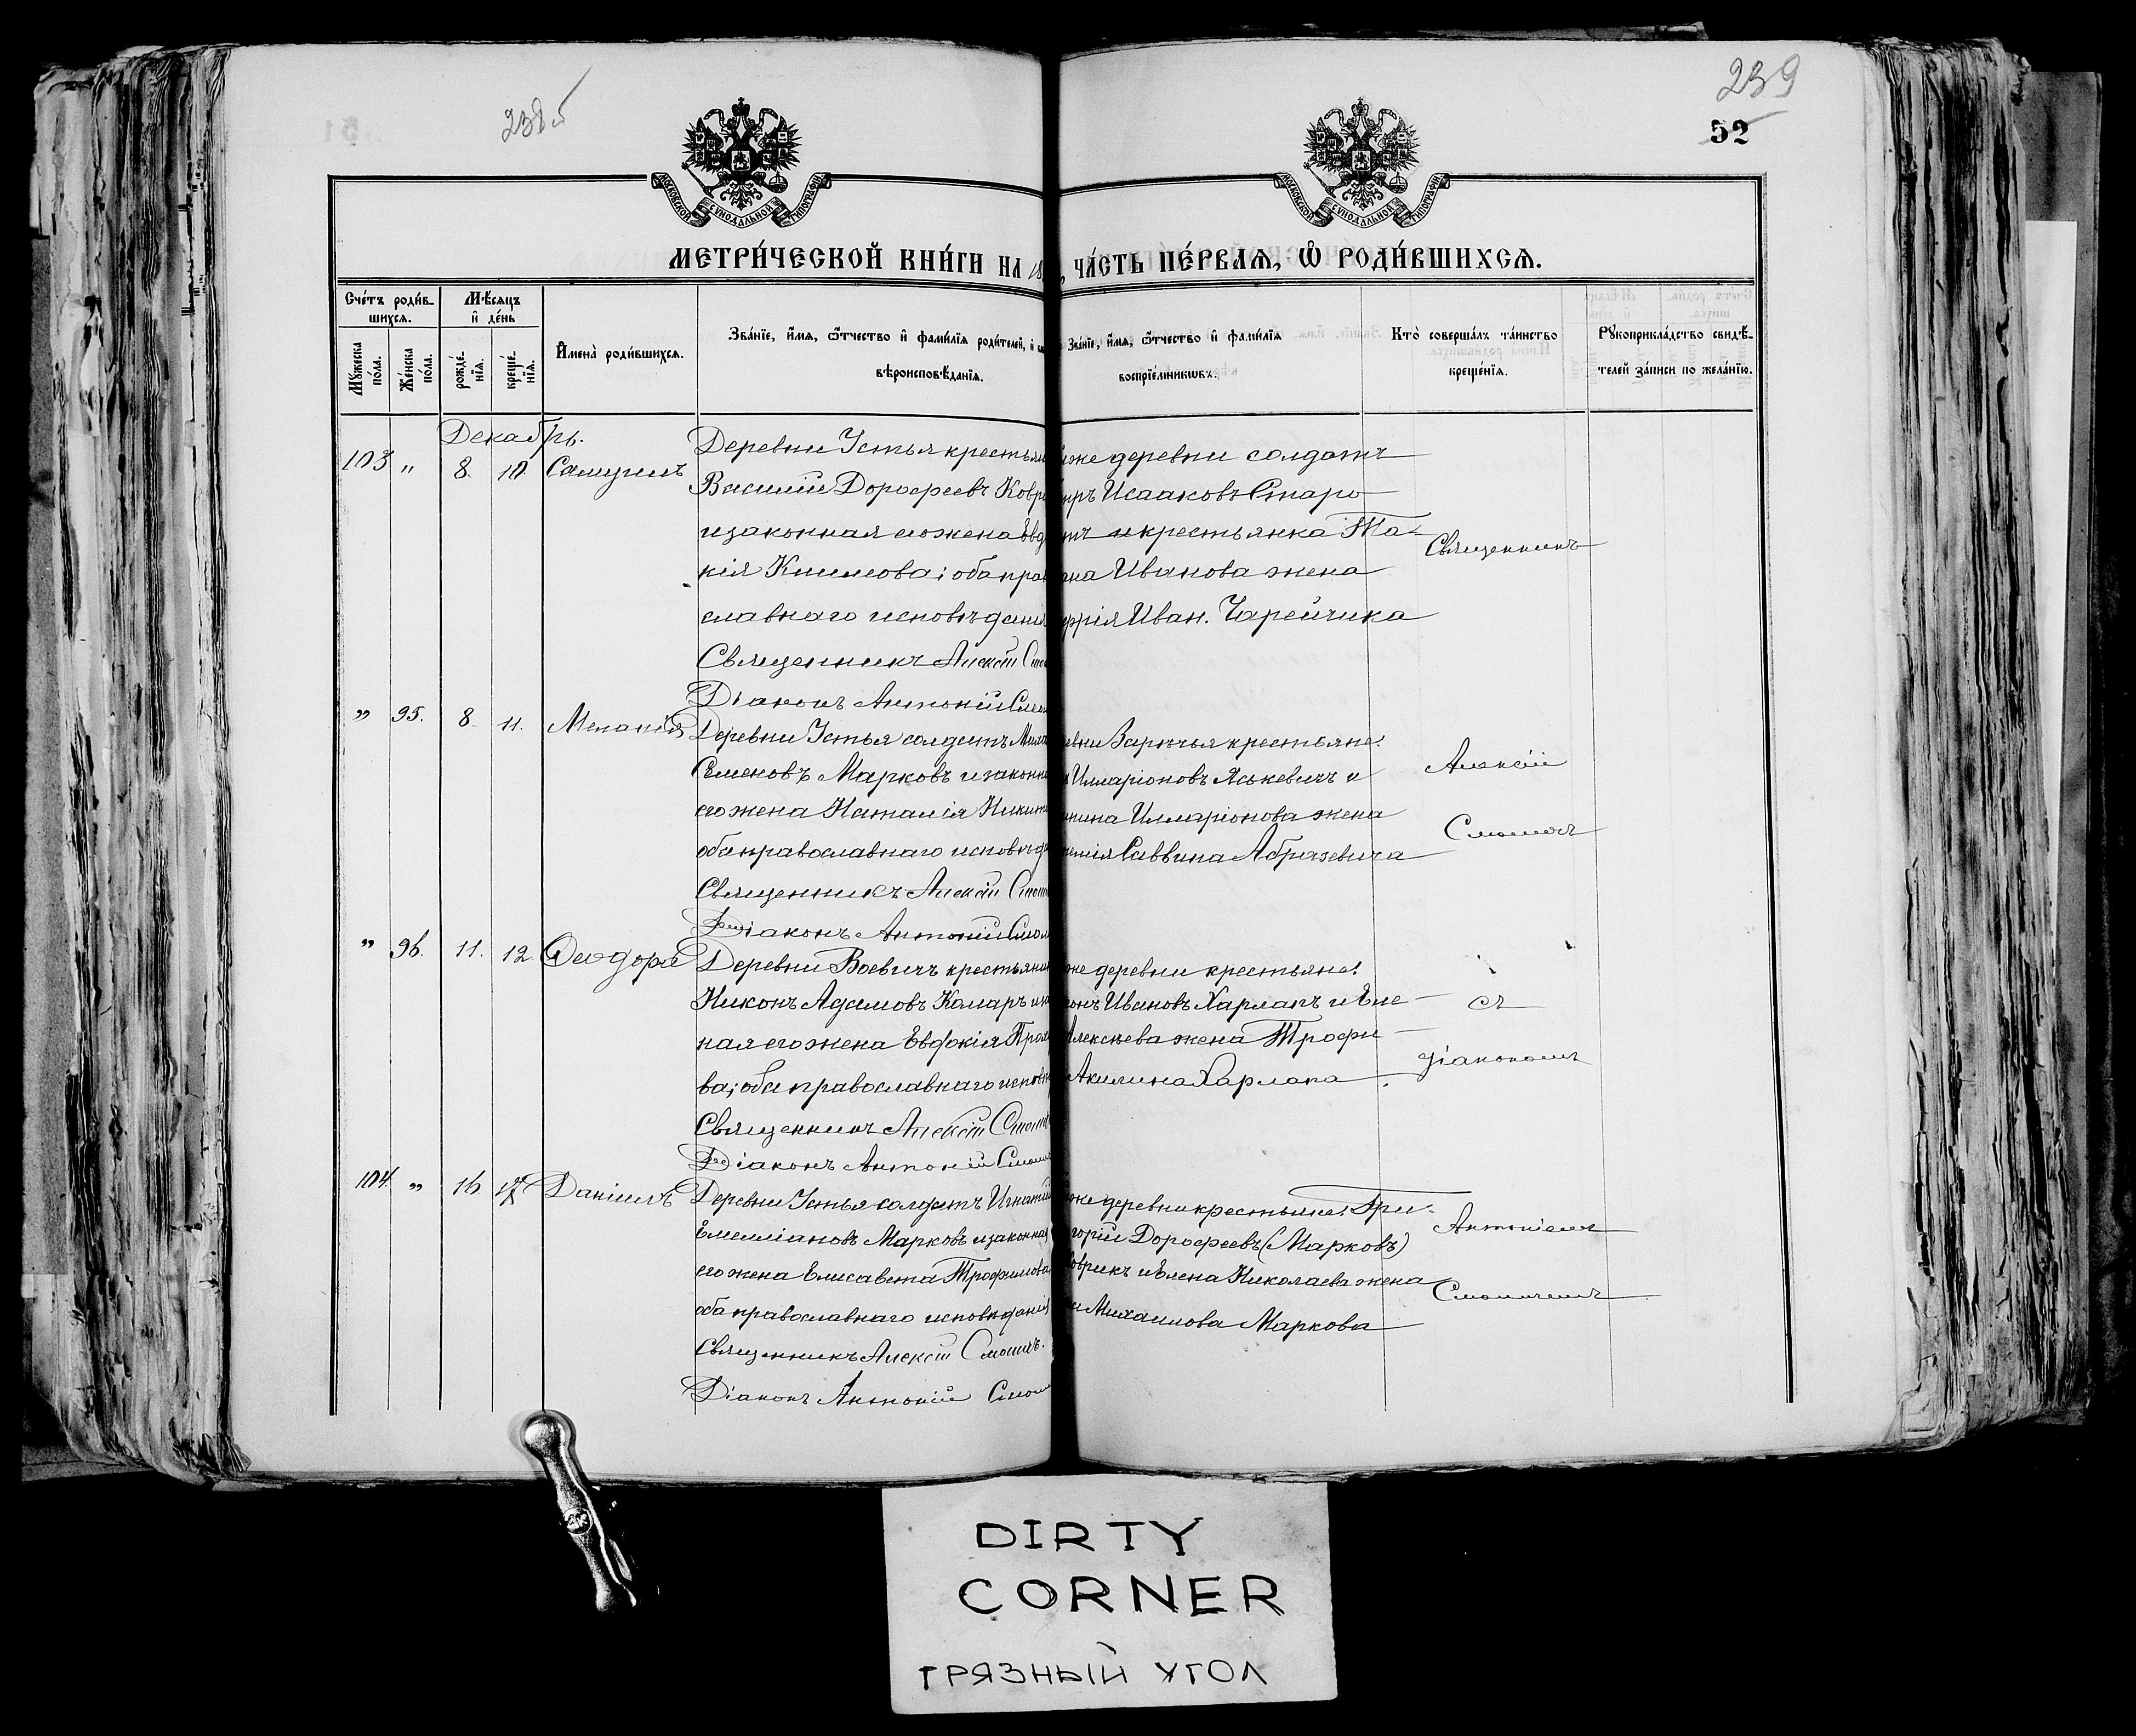 238б
239
52
МОСКОВСКОЙ СУНОДАЛЬНОЙ ТИПОГРАФІИ
МОСКОВСКОЙ СУНОДАЛЬНОЙ ТИПОГРАФІИ
МЕТРИ́ЧЕСКОЙ КНИ́ГИ НА 18
ЧА́СТЬ ПЕ́РВАѦ, Ѽ РОДИ́ВШИХСѦ.
Сче́тъ роди́в-
шихсѧ.
Мꙋ́жеска по́ла.
Же́нска по́ла.
Мѣ́сѧцъ
и҆ де́нь
рожде́-
нїѧ.
креще́-
нїѧ.
И҆мена̀ роди́вшихсѧ.
Зва́нїе, и҆́мѧ, ѻ҆́тчество и҆ фами́лїѧ роди́телей, и҆
вѣроисповѣ́данїѧ.
Зва́нїе, и҆́мѧ, ѻ҆́тчество и҆ фами́лїѧ
воспрїе́мникѡвъ.
Кто̀ соверша́лъ та́инство
креще́нїѧ.
Рꙋкоприкла́дство свидѣ́-
телей за́писи по жела́нїю.
Декабрь.
103 " 8. 10 Самуилъ
Деревни Устья крестьян
Василій Дорофеевъ Коври
и законная его жена Евдо
кія Климова; оба прав
славнаго исповѣданія
Священникъ Алексій Смо
Діаконъ Антоній Смол
же деревни солдатъ
Исааковъ Старо
и крестьянка Та-
Иванова жена
Иван. Чарейчика
Священникъ
" 95. 8. 11. Меланія
Деревни Устья солдатъ
Семеновъ Марковъ и законна
его жена Наталія Никит
оба православнаго исповѣд
Священникъ Алексій Смол
Діаконъ Антоній Смол
Зарѣчья крестьяне:
Илларіоновъ Яськевичъ и
Илларіонова жена
Саввина Абразевича
Алексій
Смоличъ
" 96. 11. 12 Ѳеодора
Деревни Воевичъ крестьянин
Никонъ Адамовъ Комаръ и за
ная его жена Евдокія Прох
ва; оба православнаго исповѣ
Священникъ Алексій Смоли
Діаконъ Антоній Смоли
же деревни крестьяне:
Ивановъ Харлапъ и Еле-
Алексѣева жена Трофи-
Акилина Харлапа
съ
діакономъ
104. " 16 17 Даніилъ
Деревни Устья солдатъ Игнатій
Емелліановъ Марковъ и законная
его жена Елисавета Трофимова
оба православнаго исповѣданія
Священникъ Алексій Смоличъ.
Діаконъ Антоній Смоли
же деревни крестьяне: Гри-
горій Дорофеевъ (Марковъ)
Коврикъ и Елена Николаева жена
Михаилова Маркова
Антоніемъ
Смоличемъ
DIRTY
CORNER
ГРЯЗНЫЙ УГОЛ